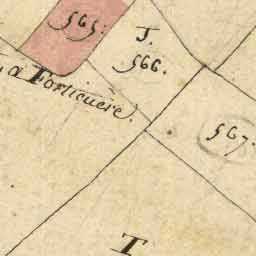 565.
J.
566.
La Forticuere.
567.
T